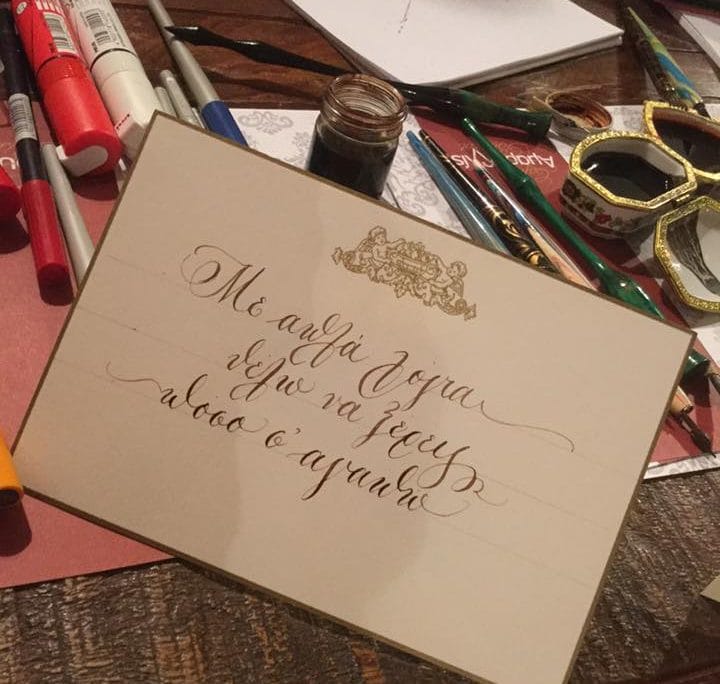 Με απλά λόγια
θέλω να ξέρεις
πόσο σ' αγαπώ